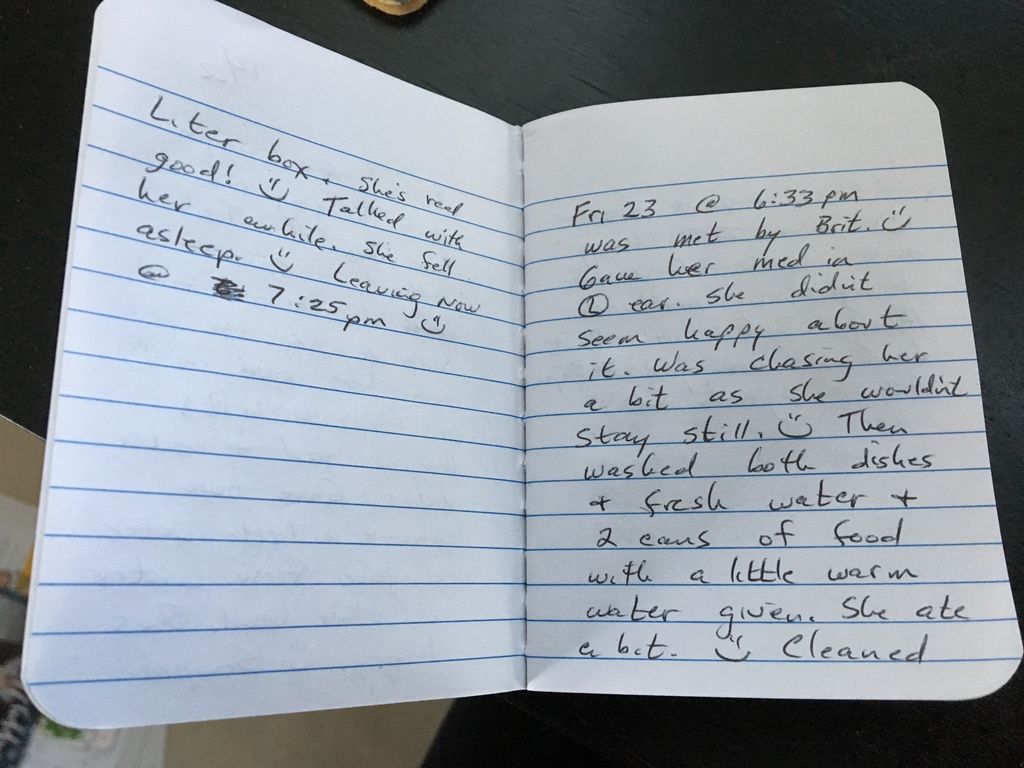 Liter box. She's real
good! ☺ Talked with
her awhile. She fell
asleep. ☺ Leaving now
@ 7:25pm ☺
Fri 23 @ 6:33pm
was met by Brit. ☺
Gave her med in
Ⓛ ear. She didn't
seem happy about
it. Was chasing her
a bit as she wouldn't
stay still. ☺ Then
washed both dishes
+ fresh water +
2 cans of food
with a little warm
water given. She ate
a bit. ☺ Cleaned